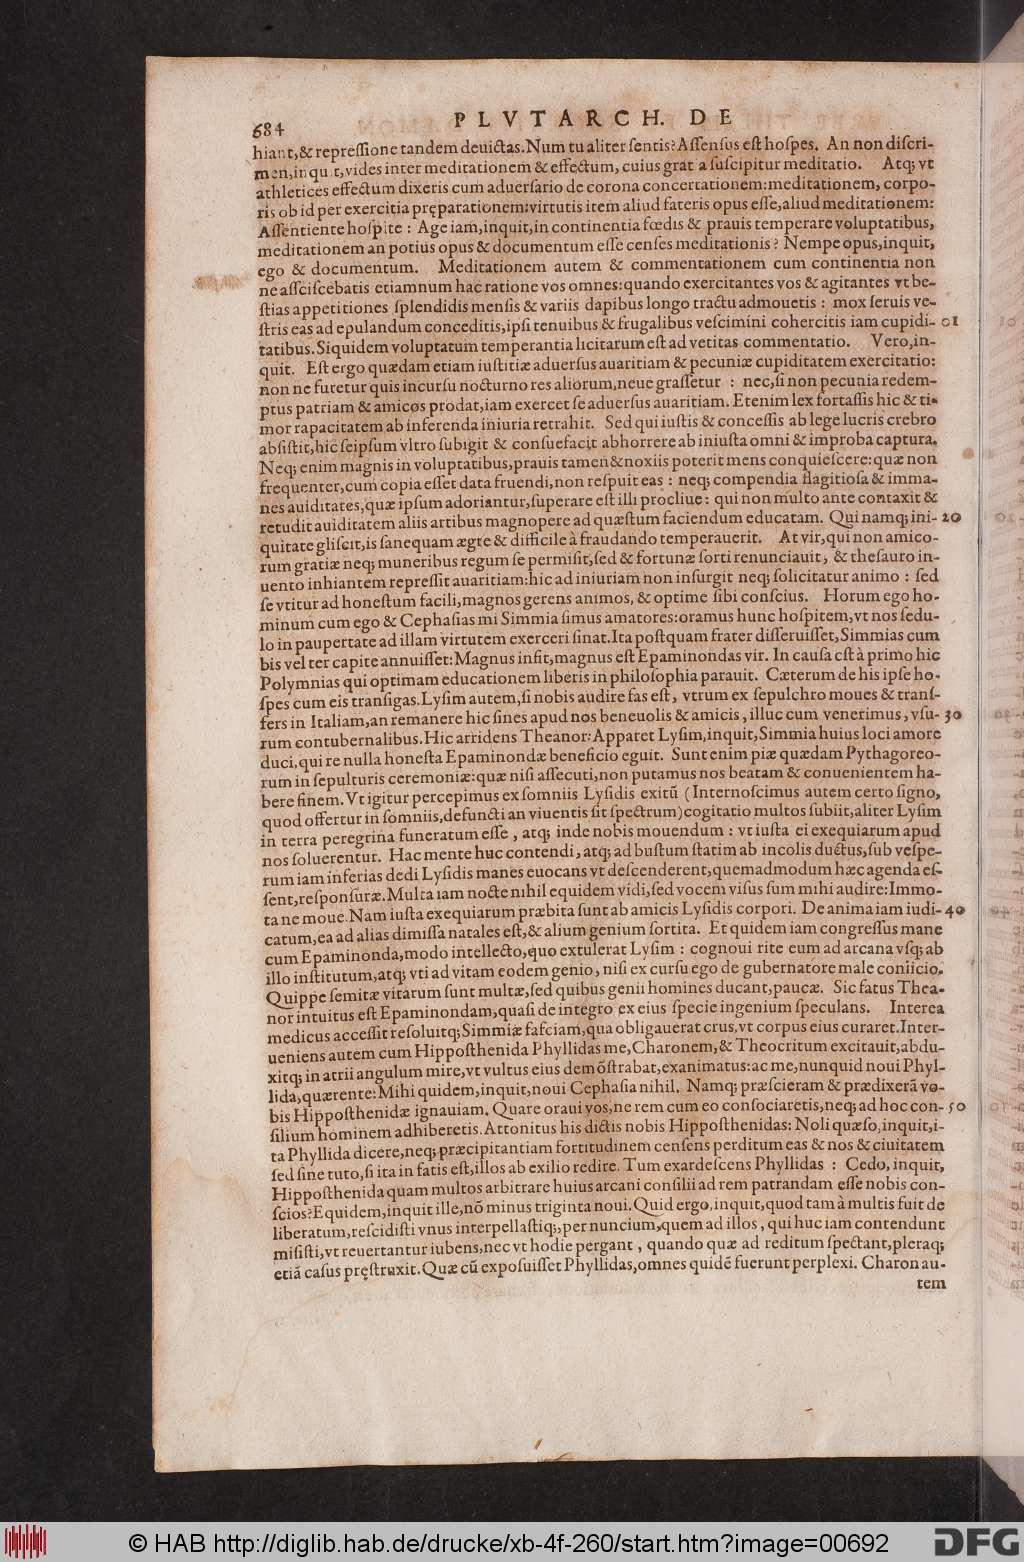 684
PLVTARCH. DE
hiant,& repreſſione tandem deuictas.Num tu aliter ſentis?Aſſenſus eſt hoſpes. An non diſcri-
men,inquit,vides inter meditationem & effectum, cuius gratia ſuſcipitur meditatio. Atq; vt
athletices effectum dixeris cum aduerſario de corona concertationem:meditationem, corpo-
ris ob id per exercitia pręparationem:virtutis item aliud fateris opus eſſe,aliud meditationem:
Aſſentiente hoſpite : Age iam,inquit,in continentia fœdis & prauis temperare voluptatibus,
meditationem an potius opus & documentum eſſe cenſes meditationis? Nempe opus,inquit,
ego & documentum. Meditationem autem & commentationem cum continentia non
ne aſſciſcebatis etiamnum hac ratione vos omnes:quando exercitantes vos & agitantes vt be-
ſtias appetitiones ſplendidis menſis & variis dapibus longo tractu admouetis : mox ſeruis ve-
ſtris eas ad epulandum conceditis,ipſi tenuibus & frugalibus veſcimini cohercitis iam cupidi- 01
tatibus.Siquidem voluptatum temperantia licitarum eſt ad vetitas commentatio. Vero,in-
quit. Eſt ergo quædam etiam iuſtitiæ aduerſus auaritiam & pecuniæ cupiditatem exercitatio:
non ne furetur quis incurſu nocturno res aliorum,neue graſſetur : nec,ſi non pecunia redem-
ptus patriam & amicos prodat,iam exercet ſe aduerſus auaritiam. Etenim lex fortaſſis hic & ti-
mor rapacitatem ab inferenda iniuria retrahit. Sed qui iuſtis & conceſſis ab lege lucris crebro
abſiſtit,hic ſeipſum vltro ſubigit & conſuefacit abhorrere ab iniuſta omni & improba captura.
Neq; enim magnis in voluptatibus,prauis tamen & noxiis poterit mens conquieſcere:quæ non
frequenter,cum copia eſſet data fruendi,non reſpuit eas : neq; compendia flagitioſa & imma-
nes auiditates,quæ ipſum adoriantur,ſuperare eſt illi procliue: qui non multo ante contaxit &
retudit auiditatem aliis artibus magnopere ad quæſtum faciendum educatam. Qui namq; ini- 20
quitate gliſcit,is ſanequam ægre & difficile à fraudando temperauerit. At vir,qui non amico-
rum gratiæ neq; muneribus regum ſe permiſit,ſed & fortunæ ſorti renunciauit, & theſauro in-
uento inhiantem repreſſit auaritiam:hic ad iniuriam non inſurgit neq; ſolicitatur animo : ſed
ſe vtitur ad honeſtum facili,magnos gerens animos, & optime ſibi conſcius. Horum ego ho-
minum cum ego & Cephaſias mi Simmia ſimus amatores:oramus hunc hoſpitem,vt nos ſedu-
lo in paupertate ad illam virtutem exerceri ſinat.Ita poſtquam frater diſſeruiſſet,Simmias cum
bis vel ter capite annuiſſet:Magnus infit,magnus eſt Epaminondas vir. In cauſa eſt à primo hic
Polymnias qui optimam educationem liberis in philoſophia parauit. Cæterum de his ipſe ho-
ſpes cum eis tranſigas.Lyſim autem,ſi nobis audire fas eſt, vtrum ex ſepulchro moues & tranſ-
fers in Italiam,an remanere hic ſines apud nos beneuolis & amicis, illuc cum venerimus, vſu- 30
rum contubernalibus.Hic arridens Theanor:Apparet Lyſim,inquit,Simmia huius loci amore
duci,qui re nulla honeſta Epaminondæ beneficio eguit. Sunt enim piæ quædam Pythagoreo-
rum in ſepulturis ceremoniæ:quæ niſi aſſecuti,non putamus nos beatam & conuenientem ha-
bere finem.Vt igitur percepimus ex ſomniis Lyſidis exitũ (Internoſcimus autem certo ſigno,
quod offertur in ſomniis,defuncti an viuentis ſit ſpectrum)cogitatio multos ſubiit,aliter Lyſim
in terra peregrina funeratum eſſe , atq; inde nobis mouendum : vt iuſta ei exequiarum apud
nos ſoluerentur. Hac mente huc contendi, atq; ad buſtum ſtatim ab incolis ductus,ſub veſpe-
rum iam inferias dedi Lyſidis manes euocans vt deſcenderent,quemadmodum hæc agenda eſ-
ſent,reſponſuræ.Multa iam nocte nihil equidem vidi,ſed vocem viſus ſum mihi audire:Immo-
ta ne moue.Nam iuſta exequiarum præbita ſunt ab amicis Lyſidis corpori. De anima iam iudi- 40
catum,ea ad alias dimiſſa natales eſt,& alium genium ſortita. Et quidem iam congreſſus mane
cum Epaminonda,modo intellecto,quo extulerat Lyſim : cognoui rite eum ad arcana vſq; ab
illo inſtitutum,atq; vti ad vitam eodem genio, niſi ex curſu ego de gubernatore male coniicio.
Quippe ſemitæ vitarum ſunt multæ,ſed quibus genii homines ducant,paucæ. Sic fatus Thea-
nor intuitus eſt Epaminondam,quaſi de integro ex eius ſpecie ingenium ſpeculans. Interea
medicus acceſſit reſoluitq; Simmiæ faſciam,qua obligauerat crus,vt corpus eius curaret.Inter-
ueniens autem cum Hippoſthenida Phyllidas me,Charonem,& Theocritum excitauit,abdu-
xitq; in atrii angulum mire,vt vultus eius demõſtrabat,exanimatus:ac me,nunquid noui Phyl-
lida,quærente:Mihi quidem,inquit,noui Cephaſia nihil. Namq; præſcieram & prædixerã vo-
bis Hippoſthenidæ ignauiam. Quare oraui vos,ne rem cum eo conſociaretis,neq; ad hoc con- 50
ſilium hominem adhiberetis.Attonitus his dictis nobis Hippoſthenidas: Noli quæſo,inquit,i-
ta Phyllida dicere,neq; præcipitantiam fortitudinem cenſens perditum eas & nos & ciuitatem
ſed ſine tuto,ſi ita in fatis eſt,illos ab exilio redire. Tum exardeſcens Phyllidas : Cedo, inquit,
Hippoſthenida quam multos arbitrare huius arcani conſilii ad rem patrandam eſſe nobis con-
ſcios?Equidem,inquit ille,nõ minus triginta noui.Quid ergo,inquit,quod tam à multis fuit de
liberatum,reſcidiſti vnus interpellaſtiq;,per nuncium,quem ad illos , qui huc iam contendunt
miſiſti,vt reuertantur iubens,nec vt hodie pergant , quando quæ ad reditum ſpectant,pleraq;
etiã caſus pręſtruxit.Quæ cũ expoſuiſſet Phyllidas,omnes quidẽ fuerunt perplexi. Charon au-
tem
© HAB http://diglib.hab.de/drucke/xb-4f-260/start.htm?image=00692
DFG